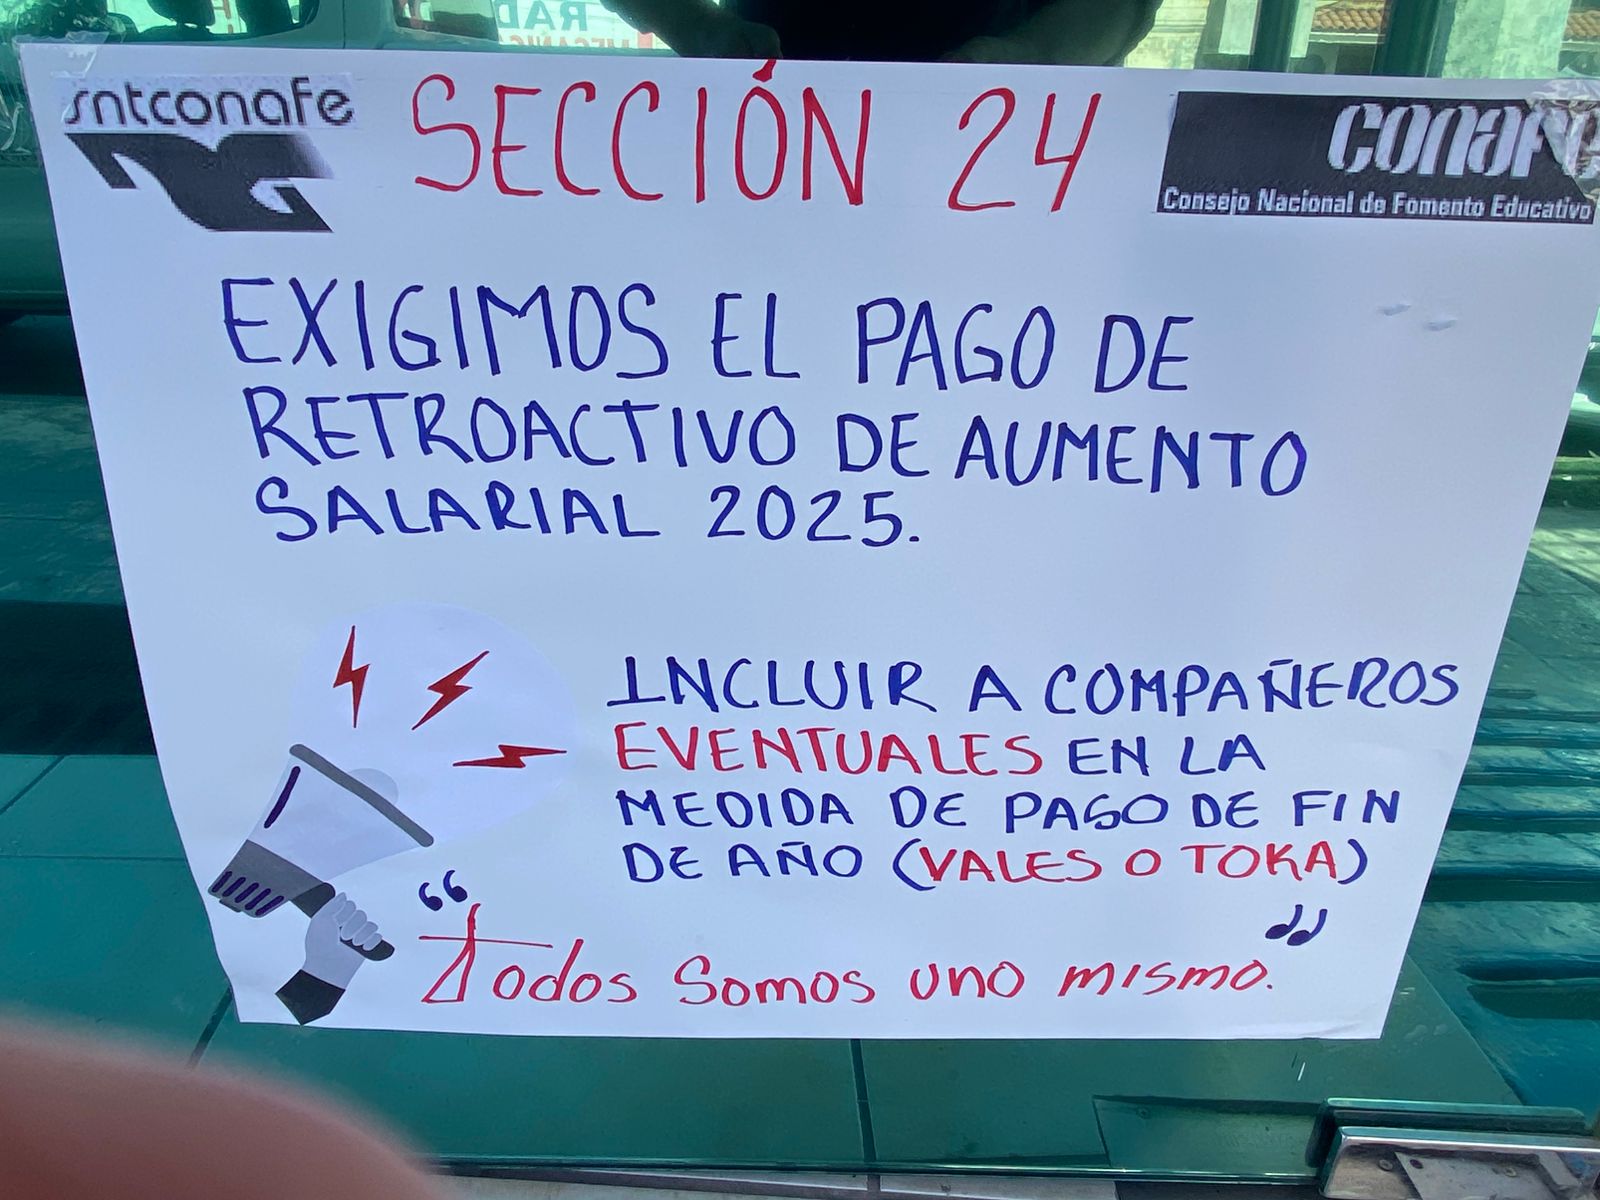 sntconafe
SECCIÓN 24
conafe
Consejo Nacional de Fomento Educativo
EXIGIMOS EL PAGO DE
RETROACTIVO DE AUMENTO
SALARIAL 2025.
INCLUIR A COMPAÑEROS
EVENTUALES EN LA
MEDIDA DE PAGO DE FIN
DE AÑO (VALES O TOKA)
“Todos somos uno mismo.”